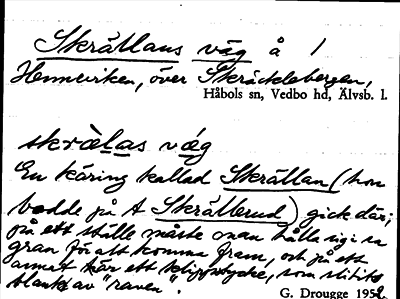 Skrållans väg å 1
Henneviken, över Skräcklebergen,
Håbols sn, Vedbo hd, Älvsb. l.
skrålas väg
En käring kallad Skrållan (hon
bodde på A Skrållerud) gick där;
på ett ställe måste man hålla sig i en
gran för att komma fram, och på ett
annat här ett klippstycke, som slitits
blankt av "räven".
G. Drougge 1952.